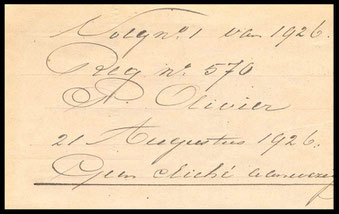 Volgno. 1 van 1926.
Reg no. 570
P. Olivier
21 Augustus 1926.
Geen cliché aanwezig